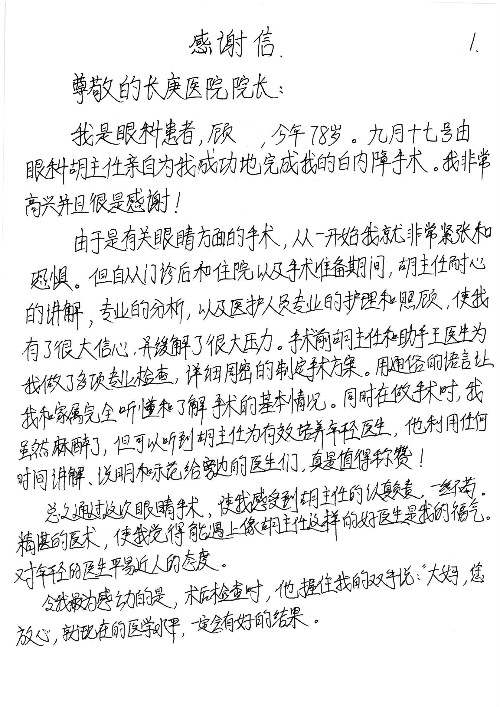 感谢信. 1.
尊敬的长庚医院院长：
我是眼科患者，顾 ，今年78岁。九月十七号由
眼科胡主任亲自为我成功地完成我的白内障手术。我非常
高兴并且很是感谢！
由于是有关眼睛方面的手术，从一开始我就非常紧张和
恐惧。但自从门诊后和住院以及手术准备期间，胡主任耐心
的讲解，专业的分析，以及医护人员专业的护理和照顾，使我
有了很大信心，并缓解了很大压力。手术前胡主任和助手王医生为
我做了多项专业检查，详细周密的制定手术方案。用通俗的语言让
我和家属完全听懂和了解手术的基本情况。同时在做手术时，我
虽然麻醉了，但可以听到胡主任为有效培养年轻医生，他利用任何
时间讲解、说明和示范给旁边的医生们，真是值得称赞！
总之通过这次眼睛手术，使我感受到胡主任的认真负责，一丝不苟。
精湛的医术，使我觉得能遇上像胡主任这样的好医生是我的福气。
对年轻的医生平易近人的态度。
令我最为感动的是，术后检查时，他握住我的双手说：“大 ，您
放心，就现在的医学水平，一定会有好的结果。